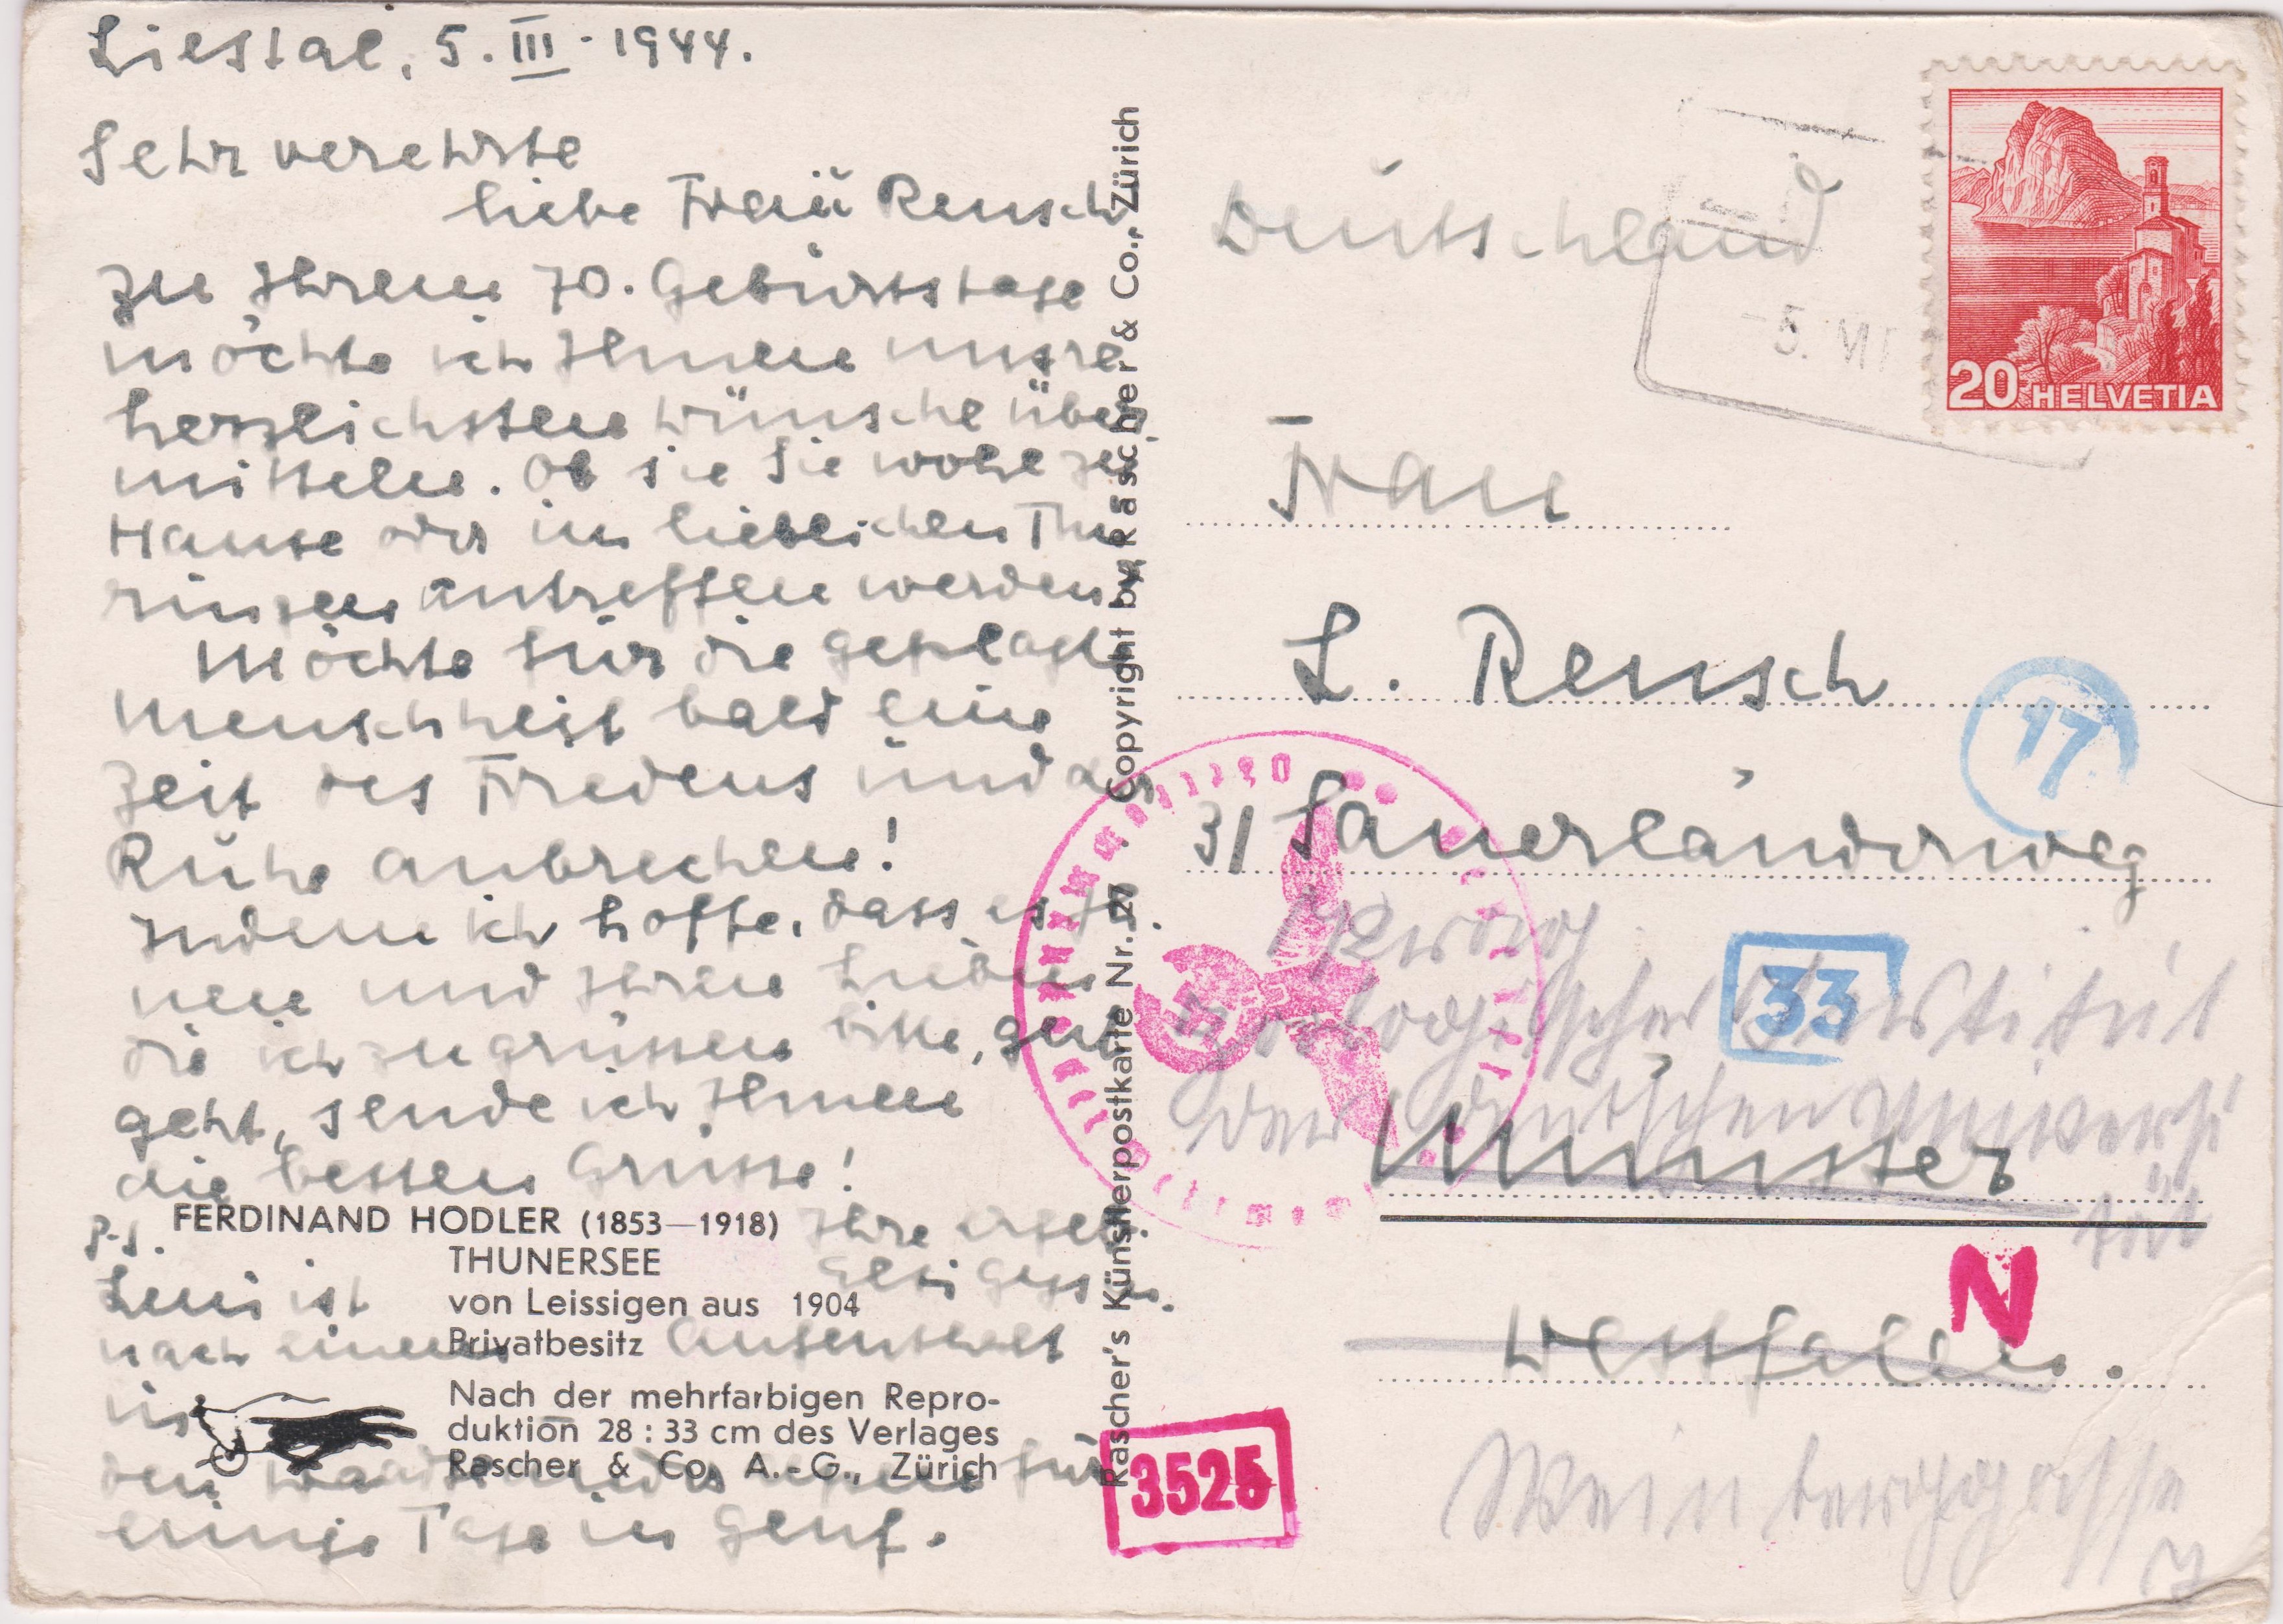 Liestal, 5. III. 1944.
Sehr verehrte
liebe Frau Rensch
Zu Ihrem 70. Geburtstage
möchte ich Ihnen unsre
herzlichsten Wünsche über
mitteln. Ob sie Sie wohl zu
Hause oder im lieblichen Thü
ringen antreffen werden
Möchte für die geplagte
Menschheit bald eine
Zeit des Friedens und der
Ruhe anbrechen!
Indem ich hoffe, dass es Ih
nen und Ihren Lieben
die ich zu grüssen bitte, gut
geht, sende ich Ihnen
die besten Grüsse!
Ihre
P.S.
Leni ist
nach einem Aufenthalt
in
den für
einige Tage in Genf.
FERDINAND HODLER (1853—1918)
THUNERSEE
von Leissigen aus 1904
Privatbesitz
Nach der mehrfarbigen Repro-
duktion 28 : 33 cm des Verlages
Rascher & Co. A.-G., Zürich
Rascher's Künstlerpostkarte Nr. 27 Copyright by Rascher & Co., Zürich
Deutschland
-5. VII
20 HELVETIA
Frau
L. Rensch
17
31 Sauerländerweg
33
Zoologisches Institut
der Deutschen Universi
tät
Münster
N
Westfalen.
3525
Weinberggasse